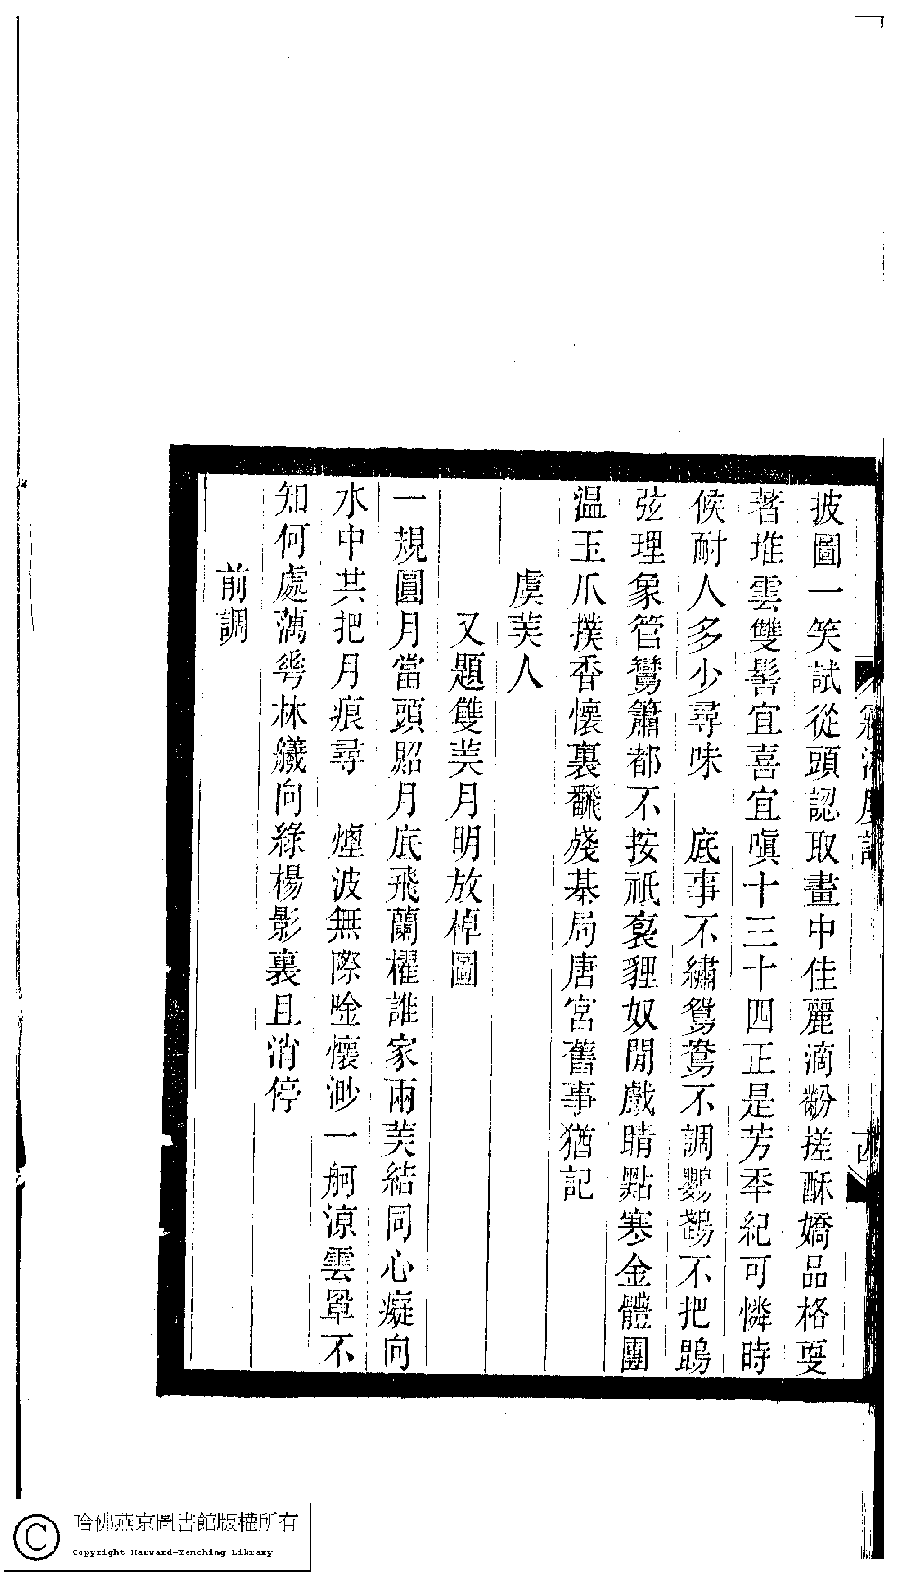 披圖一笑試從頭認取畫中佳麗滴粉搓酥嬌品格耍
著堆雲雙髻宜喜宜嗔十三十四正是芳秊紀可憐時
候耐人多少尋味　底事不繡鴛鴦不調鸚鵡不把鵾
弦理象管鸞簫都不按祇褭貍奴閒戲睛點寒金體團
温玉爪撲香懷裏飜殘棊局唐宮舊事猶記
虞美人
又題雙美月明放棹圖
一規圓月當頭照月底飛蘭櫂誰家兩美結同心癡向
水中共把月痕尋　煙波無際唫懷渺一舸涼雲罩不
知何處藕華林艤向綠楊影裏且消停
前調
哈佛燕京圖書館版權所有
Copyright Harvard-Yenching Library